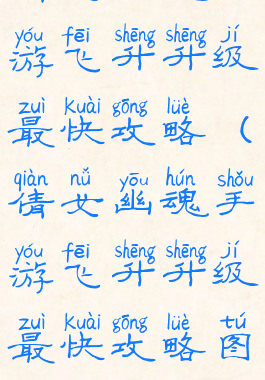 yóu fēi shēng shēng jí
游飞升升级
zuì kuài gōng lüè
最快攻略（
qiàn nǚ yōu hún shǒu
倩女幽魂手
yóu fēi shēng shēng jí
游飞升升级
zuì kuài gōng lüè tú
最快攻略图